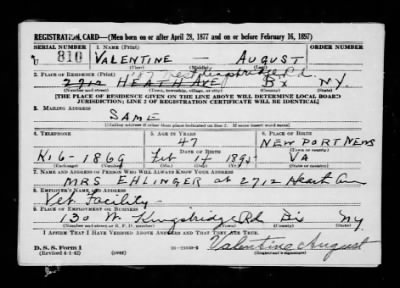 REGISTRATION CARD—(Men born on or after April 28, 1877 and on or before February 16, 1897)
SERIAL NUMBER 1. NAME (Print) ORDER NUMBER
U 810 VALENTINE — AUGUST
(First) (Middle) (Last)
2. PLACE OF RESIDENCE (Print)
2712 HEATH AVE BX NY.
(Number and street) (Town, township, village, or city) (County) (State)
[THE PLACE OF RESIDENCE GIVEN ON THE LINE ABOVE WILL DETERMINE LOCAL BOARD
JURISDICTION; LINE 2 OF REGISTRATION CERTIFICATE WILL BE IDENTICAL]
3. MAILING ADDRESS
SAME
[Mailing address if other than place indicated on line 2. If same insert word same]
4. TELEPHONE 5. AGE IN YEARS 6. PLACE OF BIRTH
47 NEWPORT NEWS
DATE OF BIRTH (Town or county)
Ki 6-1869 Feb 14 1895 VA
(Exchange) (Number) (Mo.) (Day) (Yr.) (State or country)
7. NAME AND ADDRESS OF PERSON WHO WILL ALWAYS KNOW YOUR ADDRESS
MRS EHLINGER at 2712 Heath Ave
8. EMPLOYER'S NAME AND ADDRESS
Vet. Facility
9. PLACE OF EMPLOYMENT OR BUSINESS
130 W Kingsbridge Rd Bx NY
(Number and street or R. F. D. number) (Town) (County) (State)
I AFFIRM THAT I HAVE VERIFIED ABOVE ANSWERS AND THAT THEY ARE TRUE.
D. S. S. Form 1
(Revised 4-1-42) (over)
Valentine August
(Registrant's signature)